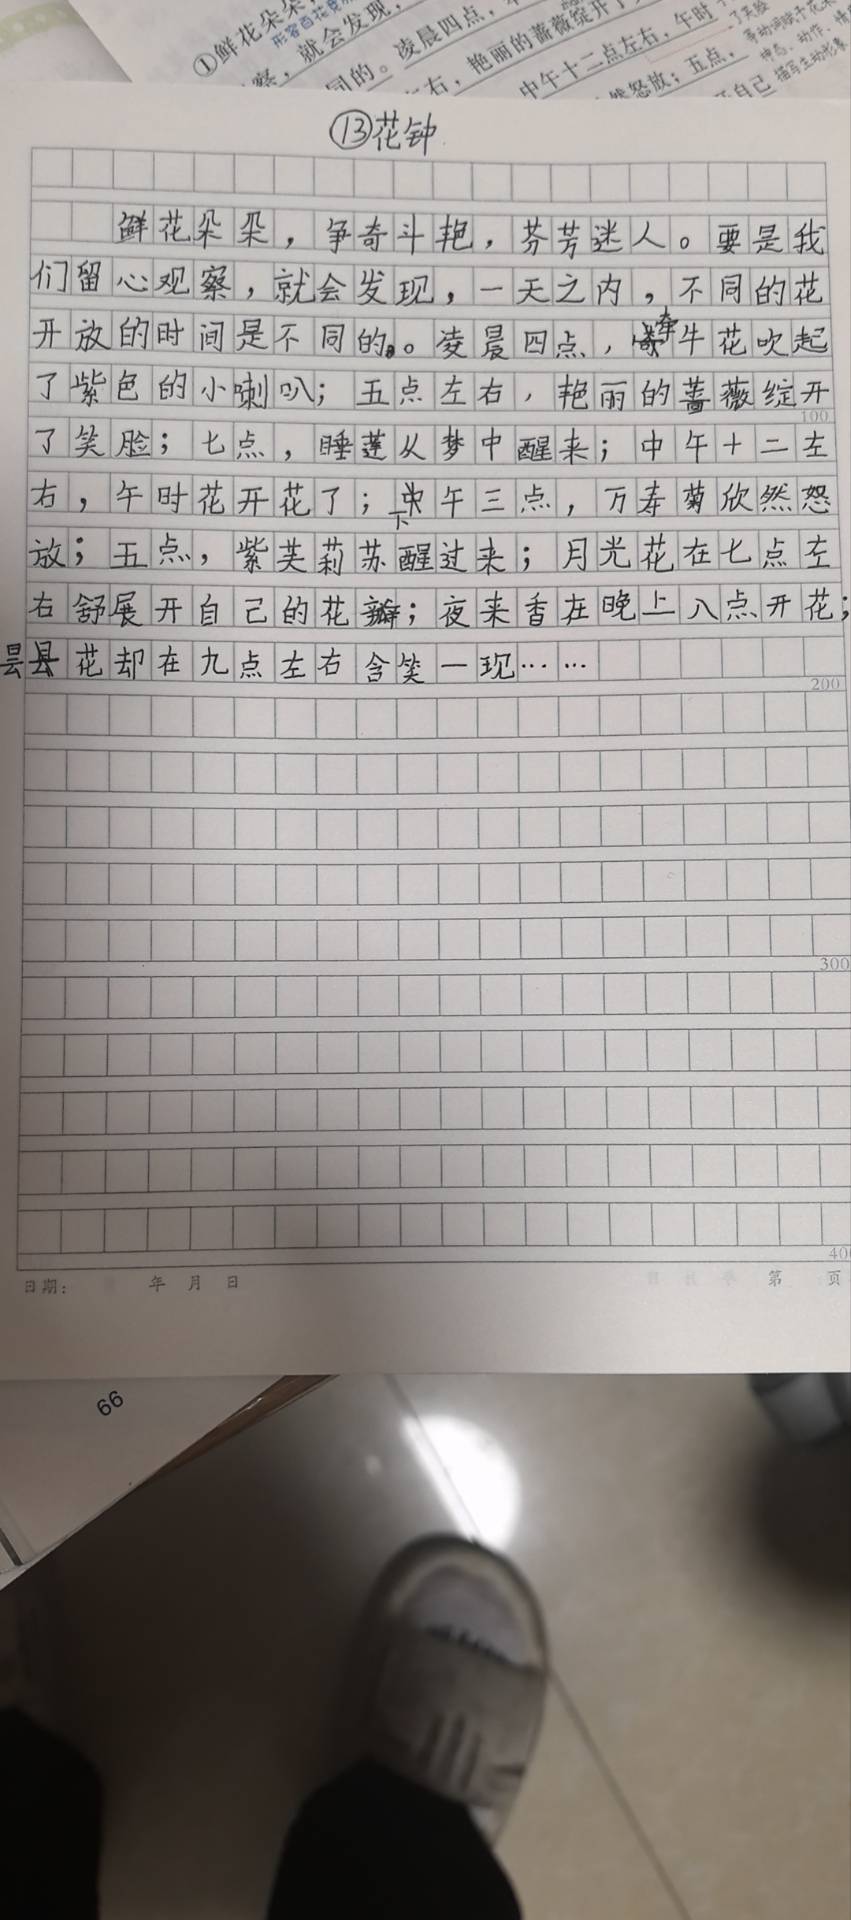 ①鲜花朵朵，
形容百花竞
察，就会发现，
同的。凌晨四点，
左右，艳丽的蔷薇绽开了
中午十二点左右，午时
然怒放；五点，
自己
了笑脸
⑬花钟
鲜花朵朵，争奇斗艳，芬芳迷人。要是我
们留心观察，就会发现，一天之内，不同的花
开放的时间是不同的。凌晨四点，牵牛花吹起
了紫色的小喇叭；五点左右，艳丽的蔷薇绽开
100
了笑脸；七点，睡莲从梦中醒来；中午十二左
右，午时花开花了；下午三点，万寿菊欣然怒
放；五点，紫芙莉苏醒过来；月光花在七点左
右舒展开自己的花瓣；夜来香在晚上八点开花；
昙花却在九点左右含笑一现……
200
300
400
日期： 年 月 日 第 页
66